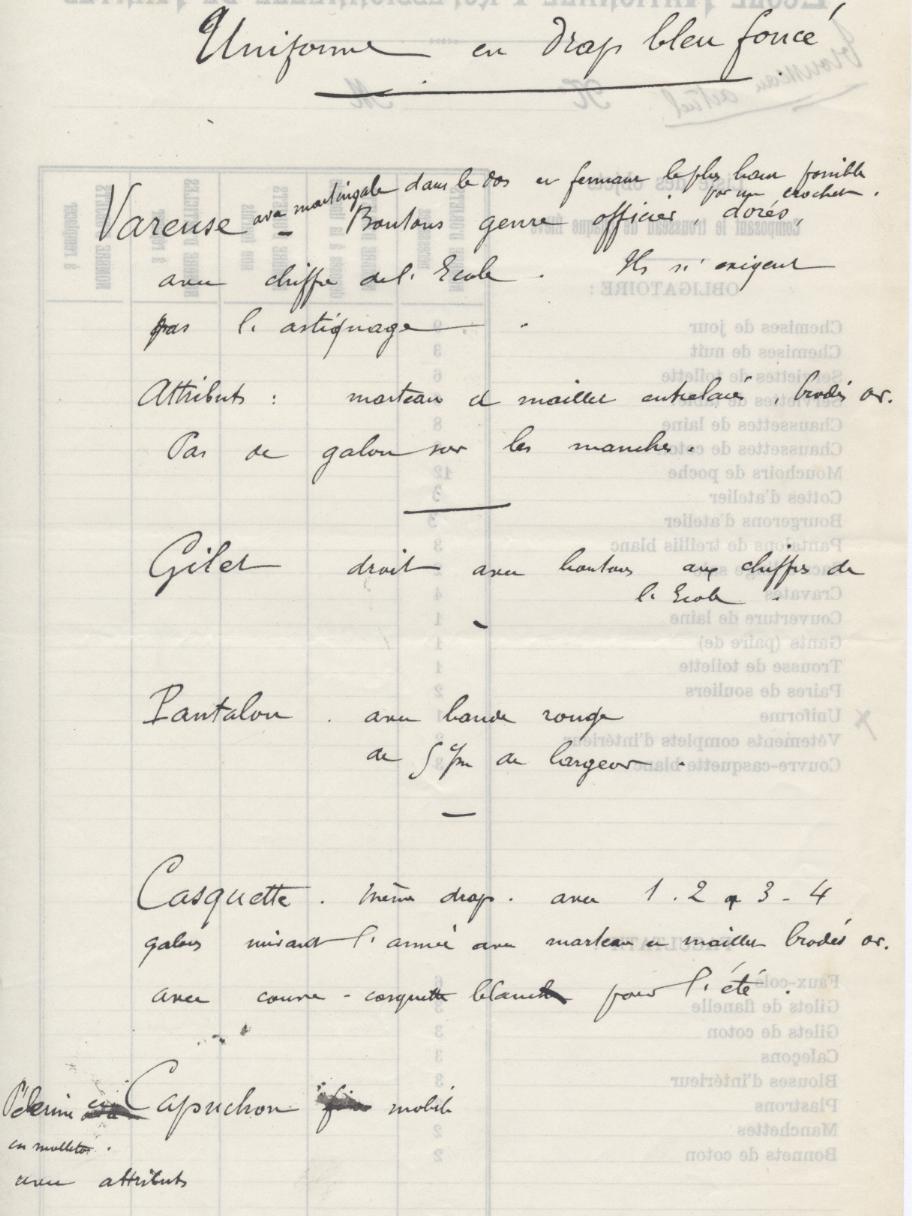 Uniforme en drap bleu foncé
avec martingale dans le dos et fermant le plus haut possible
par un crochet.
Vareuse - Boutons genre officier, dorés,
avec chiffre de l'Ecole. Ils n'exigent
pas l'astiquage.
Attributs : marteau et maillet entrelacés, brodés or.
Pas de galon sur les manches.
Gilet droit avec boutons aux chiffres de
l'Ecole.
Pantalon. avec bande rouge
de 5 c/m de largeur.
Casquette. même drap. avec 1. 2 3 - 4
galons suivant l'année avec marteau et maillet brodés or.
avec couvre-casquette blanche pour l'été.
Pélerine Capuchon mobile
en molleton.
avec attributs
ÉCOLE NATIONALE PROFESSIONNELLE DE NANTES
Trousseau actuel
M
Liste des objets
Composant le trousseau de chaque élève
OBLIGATOIRE :
Chemises de jour
Chemises de nuit 3
Serviettes de toilette 6
Serviettes de table
Chaussettes de laine 8
Chaussettes de coton
Mouchoirs de poche 12
Cottes d'atelier 3
Bourgerons d'atelier 3
Pantalons de treillis blanc 3
Cravates 4
Couverture de laine 1
Gants (paire de) 1
Trousse de toilette 1
Paires de souliers 2
Uniforme 1
Vêtements complets d'intérieur
Couvre-casquette blanc
FACULTATIF :
Faux-cols 6
Gilets de flanelle 3
Gilets de coton 3
Caleçons 3
Blouses d'intérieur 3
Plastrons
Manchettes 2
Bonnets de coton 2